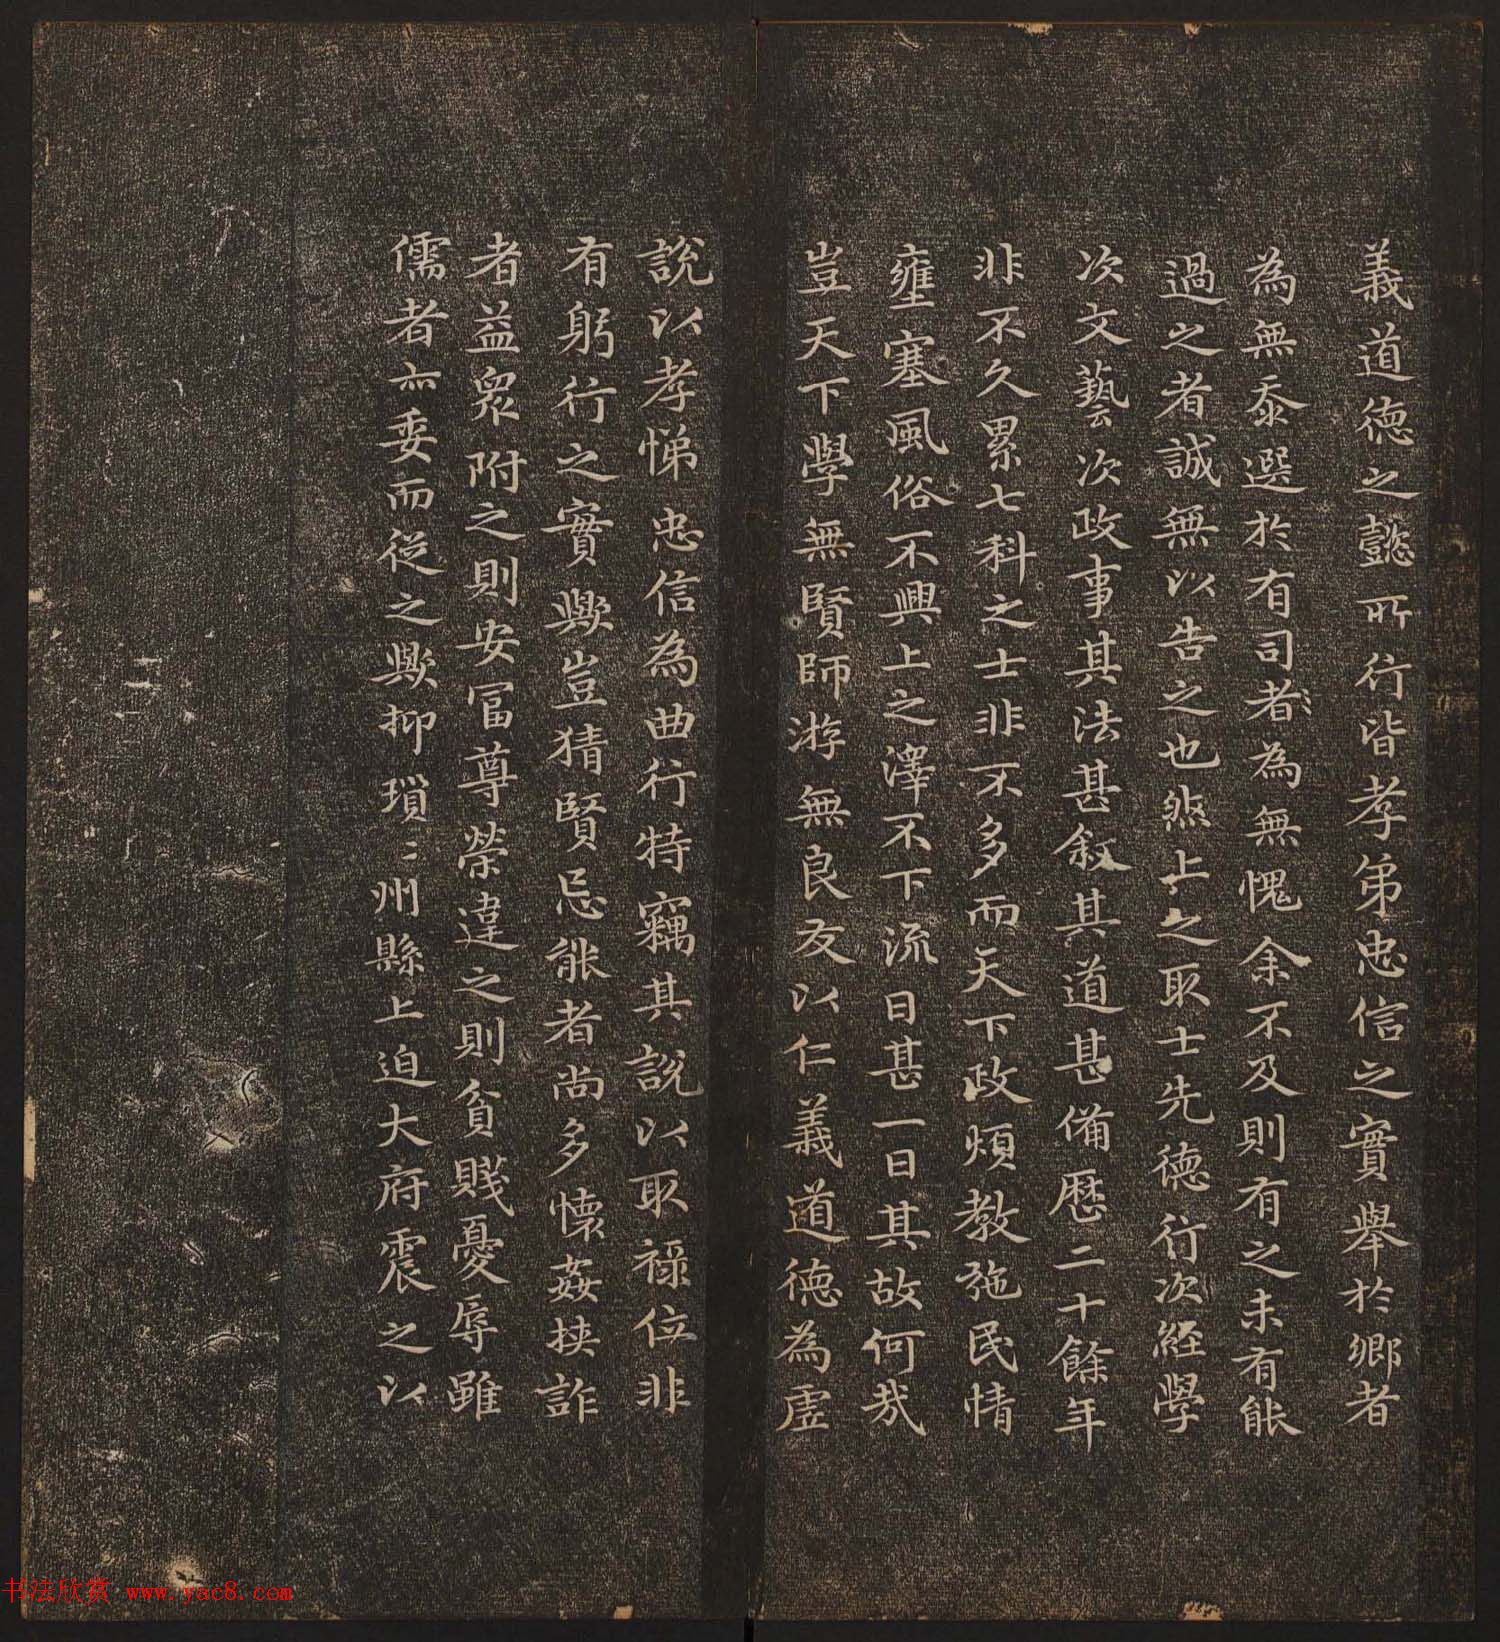 義道德之懿所行皆孝弟忠信之實舉於鄉者
為無忝選於有司者為無愧余不及則有之未有能
過之者誠無以告之也然上之取士先德行次經學
次文藝次政事其法甚叙其道甚備歷二十餘年
非不久累七科之士非不多而天下政煩教弛民情
壅塞風俗不興上之澤不下流日甚一日其故何哉
豈天下學無賢師游無良友以仁義道德為虛
說以孝悌忠信為曲行特竊其說以取祿位非
有躬行之實歟豈猜賢忌能者尚多懷姦挾詐
者益眾附之則安富尊榮違之則貧賤憂辱雖
儒者亦委而從之歟抑瑣〻州縣上迫大府震之以
书法欣赏 www.yac8.com